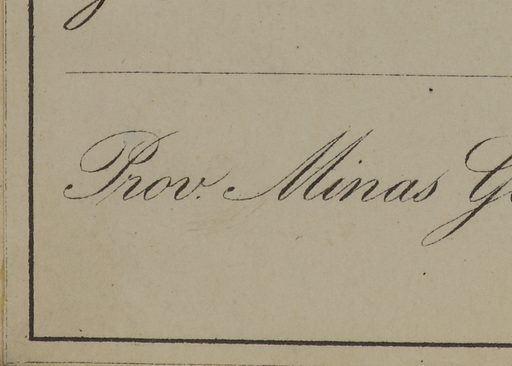 Prov. Minas